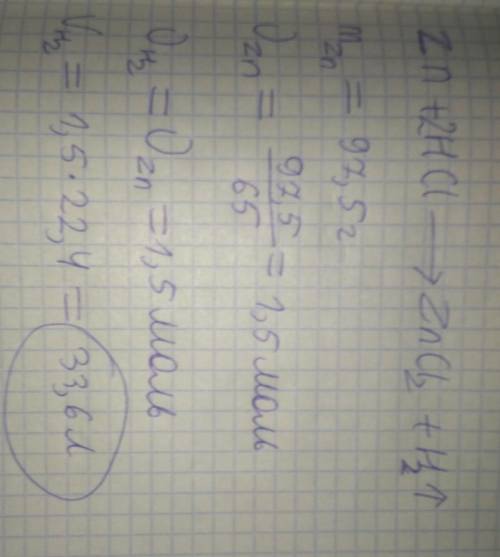 Zn + 2HCl → ZnCl₂ + H₂↑
m Zn = 97,5 г
ν Zn = 97,5 / 65 = 1,5 моль
ν H₂ = ν Zn = 1,5 моль
V H₂ = 1,5 · 22,4 = 33,6 л